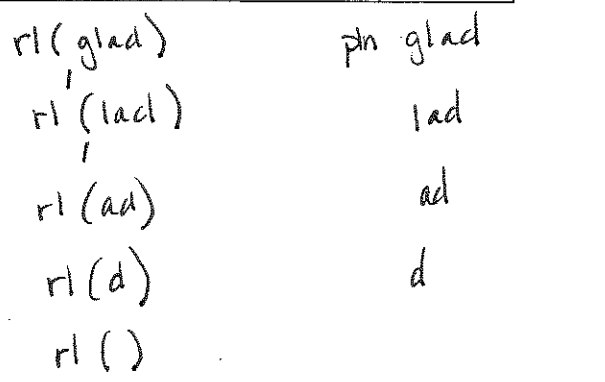 rl(glad) pln glad
rl(lad) lad
rl(ad) ad
rl(d) d
rl()